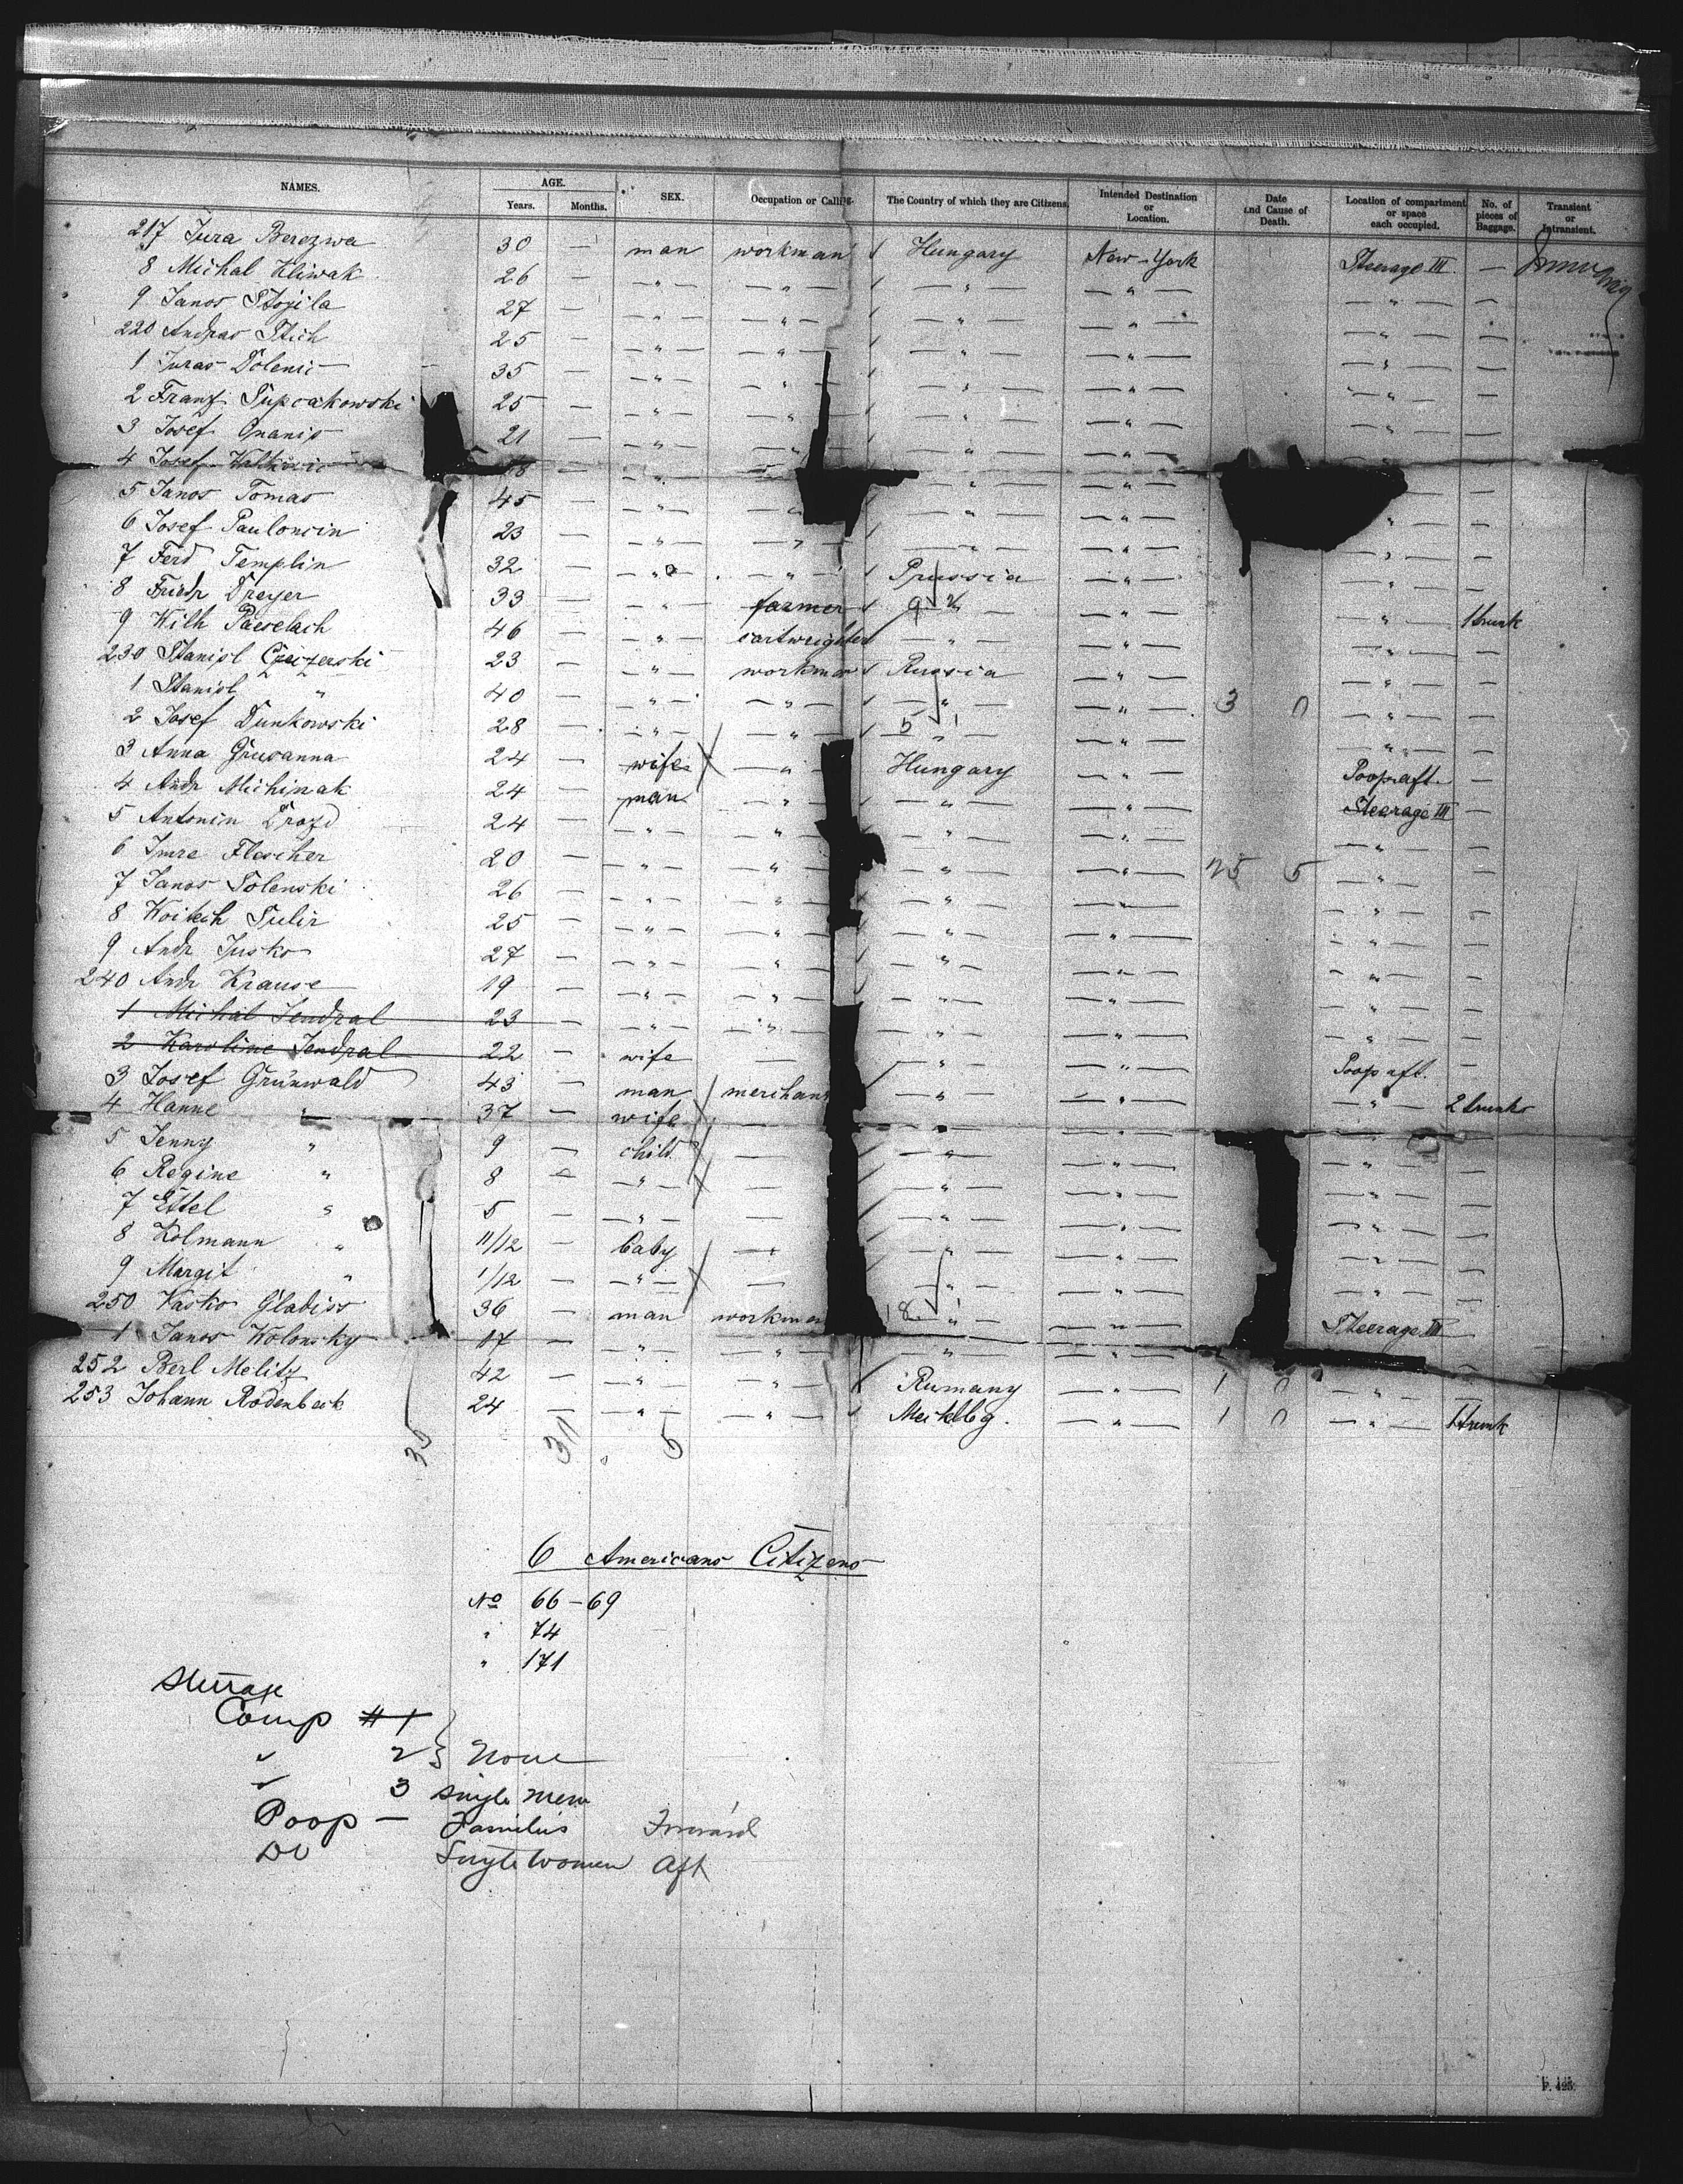 NAMES. AGE. Years. Months. SEX. Occupation or Calling. The Country of which they are Citizens. Intended Destination or Location. Date and Cause of Death. Location of compartment or space each occupied. No. of pieces of Baggage. Transient or Intransient.
217 Jura Berezwa 30 — man workman Hungary New-York Steerage III —
8 Michal Hliwak 26 — — " — — " — — " — — " — — " — —
9 Janos Stojila 27 — — " — — " — — " — — " — — " — —
220 Andras Stich 25 — — " — — " — — " — — " — — " — —
1 Juras Dolenic 35 — — " — — " — — " — — " — — " — —
2 Franz Supcakowski 25 — — " — — " — — " — — " — — " — —
3 Josef 21 — — " — — " — — " — — " — — " — —
4 Josef — " — — " — — " —
5 Janos Tomas 45 — — " — — " — — " — —
6 Josef Pauloncin 23 — — " — — " — — " — — " — — " — —
7 Ferd Templin 32 — — " — — " — Prussia — " — — " — —
8 Friedr Dreyer 33 — — " — farmer — " — — " — 1 trunk
9 Wilh Paeselach 46 — — " — cartwrighter — " — — " — — " — —
230 Stanisl Czizerski 23 — — " — workman Russia — " — — " — —
1 Stanisl " 40 — — " — — " — — " — — " — 3 0 — " — —
2 Josef Dunkowski 28 — — " — — " — 5 — " — — " — —
3 Anna Grusanna 24 — wife — " — Hungary — " — Poop aft. —
4 Andr Michinak 24 — man — " — — " — — " — Steerage III —
5 Antonin Drozd 24 — — " — — " — — " — — " — — " — —
6 Imre Flescher 20 — — " — — " — — " — — " — 25 5 — " — —
7 Janos Solenski 26 — — " — — " — — " — — " — — " — —
8 Woitech Sulir 25 — — " — — " — — " — — " — — " — —
9 Andr Jusko 27 — — " — — " — — " — — " — — " — —
240 Andr Krause 19 — — " — — " — — " — — " — — " — —
1 Michal Jendral 23 — — " — — " — — " — — " — — " — —
2 Karoline Jendral 22 — wife — — " — — " — Poop aft. —
3 Josef Grünwald 43 — man merchant — " — — " — — " — 2 trunks
4 Hanne " 37 — wife — — " — — " —
5 Jenny " 9 — child — — " — — " — — " — —
6 Regine " 8 — — " — — — " — — " — — " — —
7 Ettel " 5 — — " — — — " — — " — — " — —
8 Kolmann " 11/12 — baby — — " — — " — — " — —
9 Margit " 1/12 — — " — — — " — — " — — " — —
250 Wasko Gladiss 36 — man workman 18 — " — Steerage III —
1 Janos Wolonsky 17 — — " — — " — — " — — " —
252 Berl Melitz 42 — — " — — " — Rumany — " — 1 0 — " — —
253 Johann Rodenbeck 24 — — " — — " — Mecklbg. — " — 1 0 — " — 1 trunk
35 31 5
6 Americans Citizens
No 66-69
" 74
" 171
Steerage
Comp # 1
" 2 } None
" 3 single men
Poop — Families Forward
Do Single Women Aft